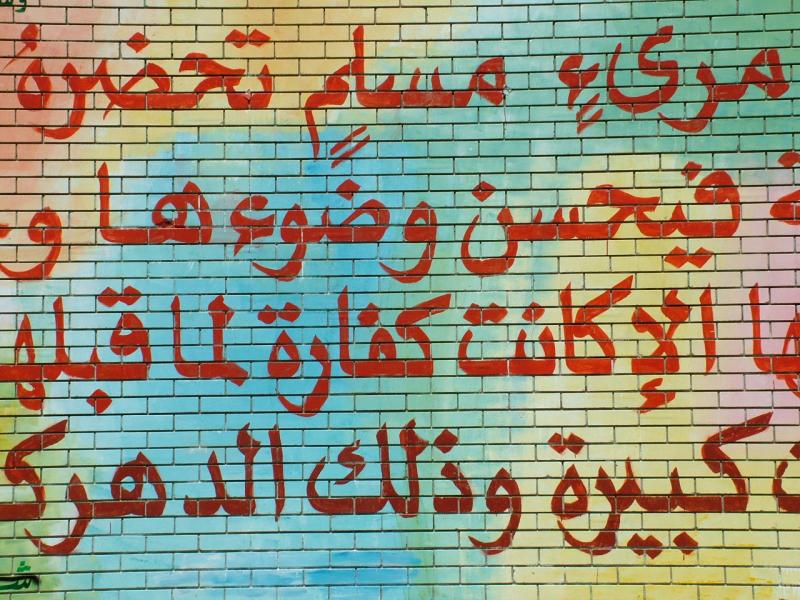 مرىءٍ مسلمٍ تحضرهُ
فيحسن وضوءها و
ها إلا كانت كفارة لما قبلها
كبيرة وذلك الدهر ك